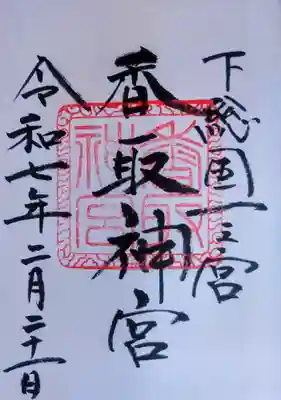 下総国一宮
香取神宮
令和七年二月二十一日